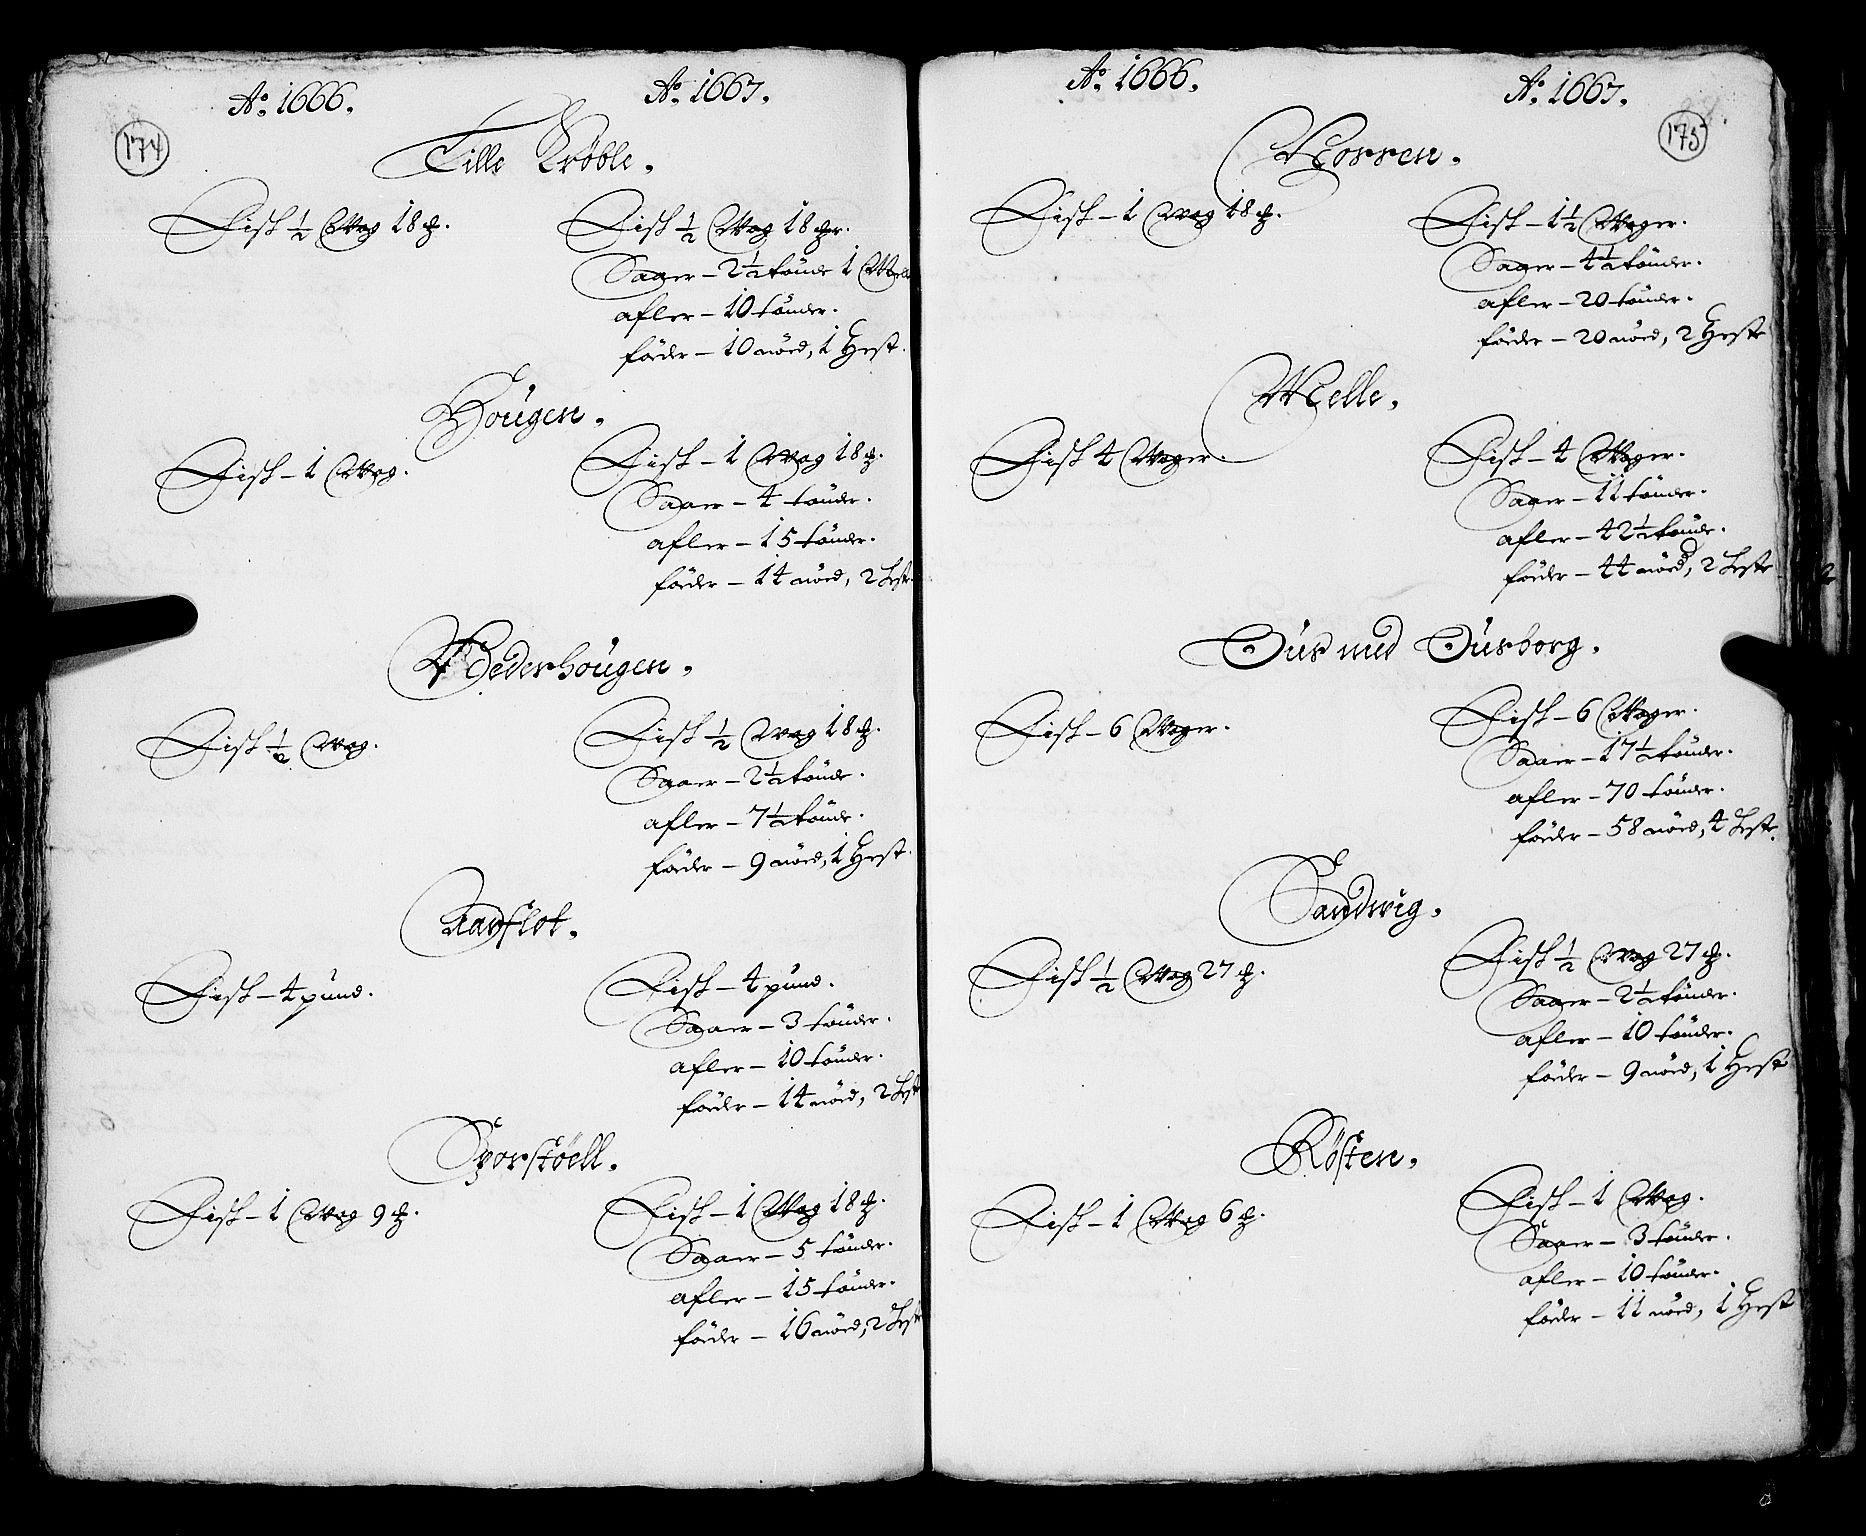 174
Ao. 1666. Ao. 1667.
Lille Krøble.
Fisk ½ Wog 18 ℔.
Fisk ½ Wog 18 ℔er.
Saaer – 2½ tönde 1 Mele
afler – 10 tönder.
föder – 10 nöed, 1 Hest.
Hougen.
Fisk – 1 Wog.
Fisk – 1 Wog 18 ℔.
Saaer – 4 tönder.
afler – 15 tönder.
föder – 14 nöed, 2 Heste
Wederhougen.
Fisk ½ Wog.
Fisk ½ Wog 18 ℔.
Saaer – 2½ tönde.
afler – 7½ tönde.
föder – 9 nöed, 1 Hest.
Aarflot.
Fisk – 4 pund.
Fisk – 4 pund.
Saaer – 3 tönder.
afler – 10 tönder.
föder – 14 nöed, 2 Heste
Sporstöell.
Fisk – 1 Wog 9 ℔.
Fisk – 1 Wog 18 ℔.
Saaer – 5 tönder.
afler – 15 tönder.
föder – 16 nöed, 2 Heste
175
Ao. 1666. Ao. 1667.
Morren.
Fisk – 1 Wog 18 ℔.
Fisk – 1½ Woger.
Saaer – 4½ tönder.
afler – 20 tönder.
föder – 20 nöed, 2 Heste
Melle.
Fisk 4 Woger.
Fisk – 4 Woger.
Saaer – 11 tönder.
afler – 42½ tönde.
föder – 44 nöed, 2 Heste
Öus med Öusborg.
Fisk – 6 Woger.
Fisk – 6 Woger.
Saaer – 17½ tönder.
afler – 70 tönder.
föder – 58 nöed, 4 Heste.
Sandwig.
Fisk ½ Wog 27 ℔.
Fisk ½ Wog 27 ℔.
Saaer – 2½ tönder.
afler – 10 tönder.
föder – 9 nöed, 1 Hest
Røsten.
Fisk – 1 Wog 6 ℔.
Fisk – 1 Wog.
Saaer – 3 tönder.
afler – 10 tönder.
föder – 11 nöed, 1 Hest